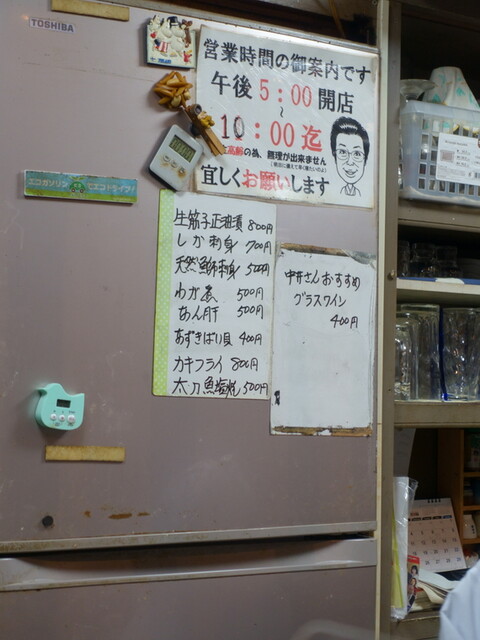 TOSHIBA
営業時間の御案内です
午後5:00開店
~
10:00迄
高齢の為、無理が出来ません
宜しくお願いします
エコガソリン でエコドライブ!
生筋子正油漬 800円
しか刺身 700円
天然鰤刺身 500円
わか煮 500円
あん肝 500円
あずきばり貝 400円
カキフライ 800円
太刀魚塩焼 500円
中井さんおすすめ
グラスワイン
400円